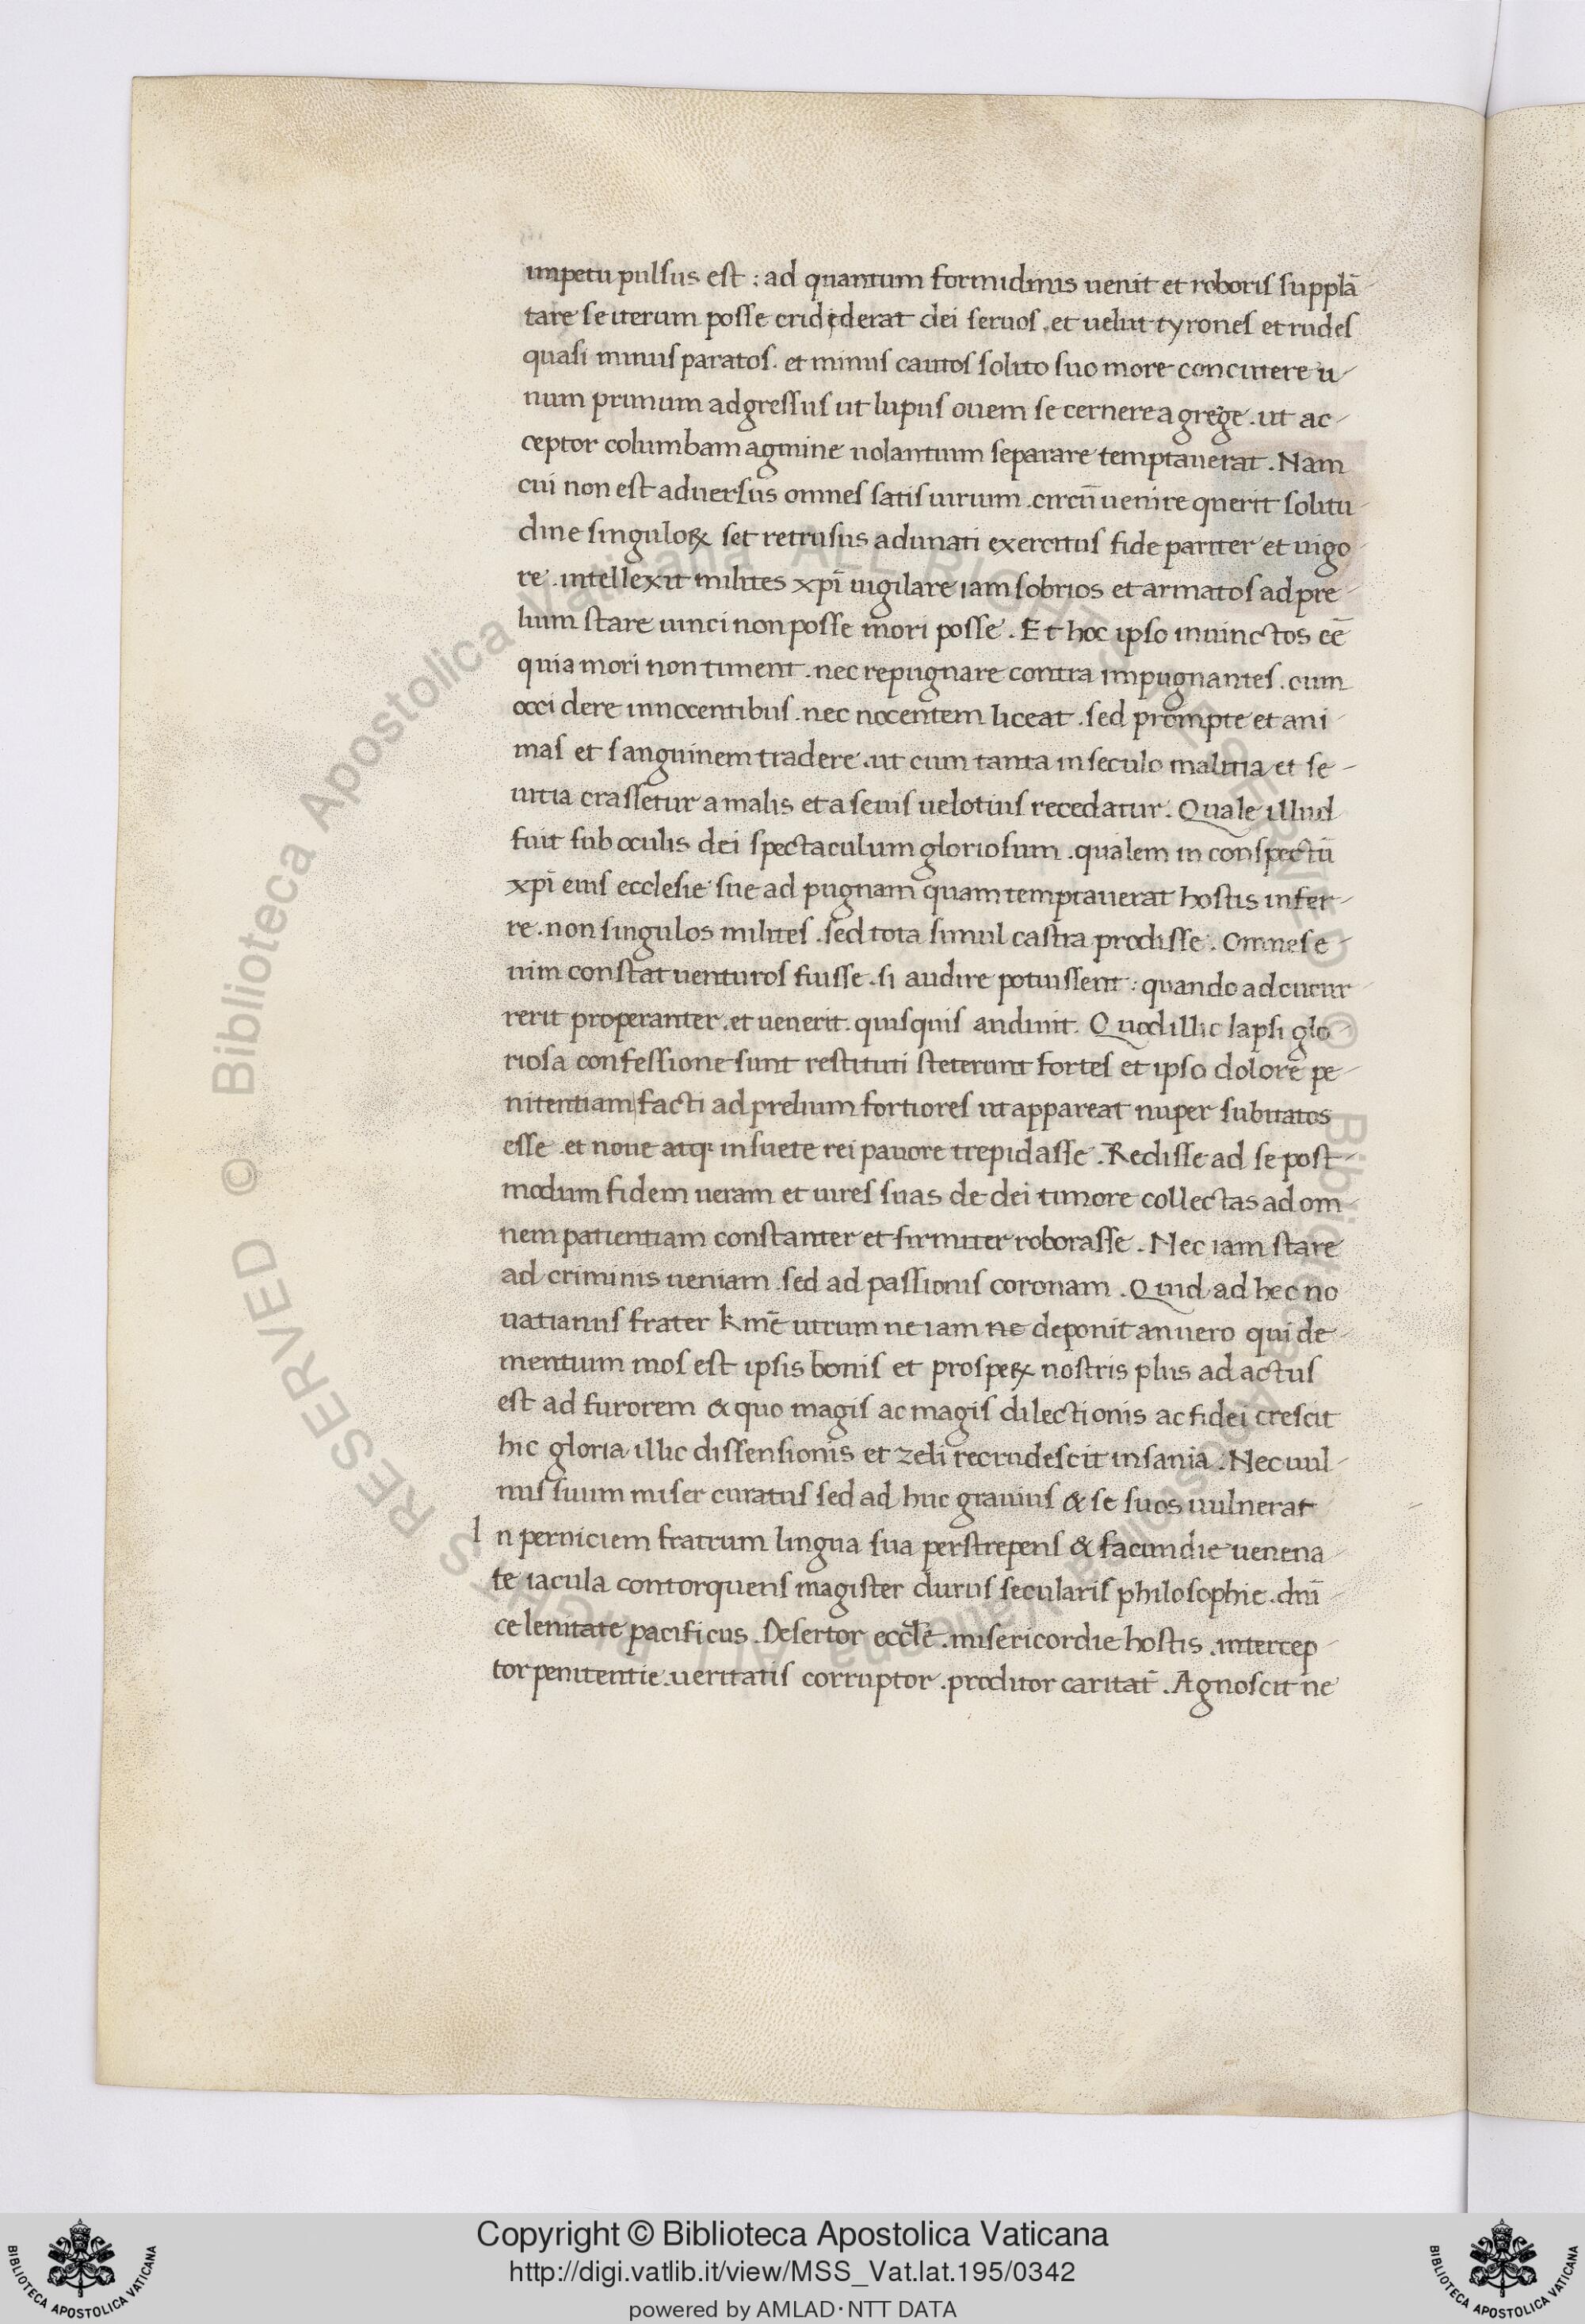 impetu pulsus est : ad quantum formidinis uenit et roboris supplā-
tare se iterum posse crididerat dei seruos . et uelut tyrones et rudes
quasi minus paratos . et minus cautos solito suo more concutere u-
num primum adgressus ut lupus ouem secernere a grege . ut ac-
ceptor columbam agmine uolantium separare temptauerat . Nam
cui non est aduersus omnes satis uirium . circūuenire querit solitu-
dine singuloꝝ set retrusus adunati exercitus fide pariter et uigo-
re . intellexit milites xp̄i uigilare iam sobrios et armatos ad pre-
lium stare uinci non posse mori posse . Et hoc ipso inuinctos eē
quia mori non timent . nec repugnare contra impugnantes . cum
occidere innocentibus . nec nocentem liceat . sed prompte et ani-
mas et sanguinem tradere . ut cum tanta in seculo malitia et se-
uitia crassetur a malis et a seuis uelotius recedatur . Quale illud
fuit sub oculis dei spectaculum gloriosum . qualem in conspectū
xp̄i eius ecclesie sue ad pugnam quam temptauerat hostis infer-
re . non singulos milites . sed tota simul castra prodisse . Omnes e-
nim constat uenturos fuisse . si audire potuissent : quando adcucur-
rerit properanter . et uenerit . quisquis audiuit . Quod illic lapsi glo-
riosa confessione sunt restituti steterunt fortes et ipso dolore pe-
nitentiam facti ad prelium fortiores ut appareat nuper subitatos
esse . et noue atqꝫ insuete rei pauore trepidasse . Redisse ad se post-
modum fidem ueram et uires suas de dei timore collectas ad om-
nem patientiam constanter et firmiter roborasse . Nec iam stare
ad criminis ueniam . sed ad passionis coronam . Quid ad hec no
uatianus frater kmē utrum ne iam ne deponit an uero qui de-
mentium mos est ipsis bonis et prosperꝝ nostris plus ad actus
est ad furorem & quo magis ac magis dilectionis ac fidei crescit
hic gloria illic dissensionis et zeli recrudescit insania . Nec uul-
nus suum miser curatus sed ad huc grauius & se suos uulnerat
I n perniciem fratrum lingua sua perstrepens & facundie uenena-
te iacula contorquens magister durus secularis philosophie . dn̄i-
ce lenitate pacificus . Desertor ecclē . misericordie hostis . intercep-
tor penitentie . ueritatis corruptor . proditor caritat̄ . Agnoscit ne
Copyright © Biblioteca Apostolica Vaticana
http://digi.vatlib.it/view/MSS_Vat.lat.195/0342
powered by AMLAD·NTT DATA
BIBLIOTECA APOSTOLICA VATICANA
BIBLIOTECA APOSTOLICA VATICANA